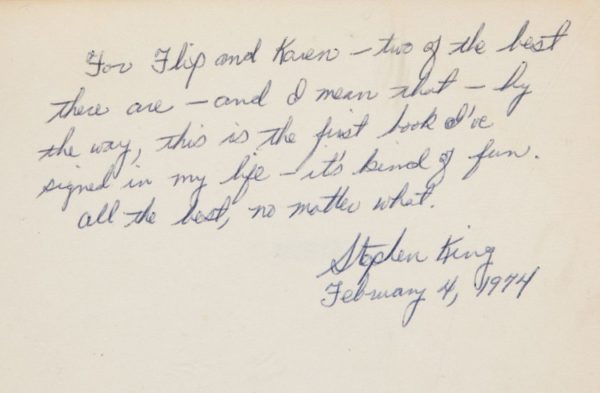 For Flip and Karen – two of the best
there are – and I mean that – by
the way, this is the first book I've
signed in my life – it's kind of fun.
all the best, no matter what.
Stephen King
February 4, 1974